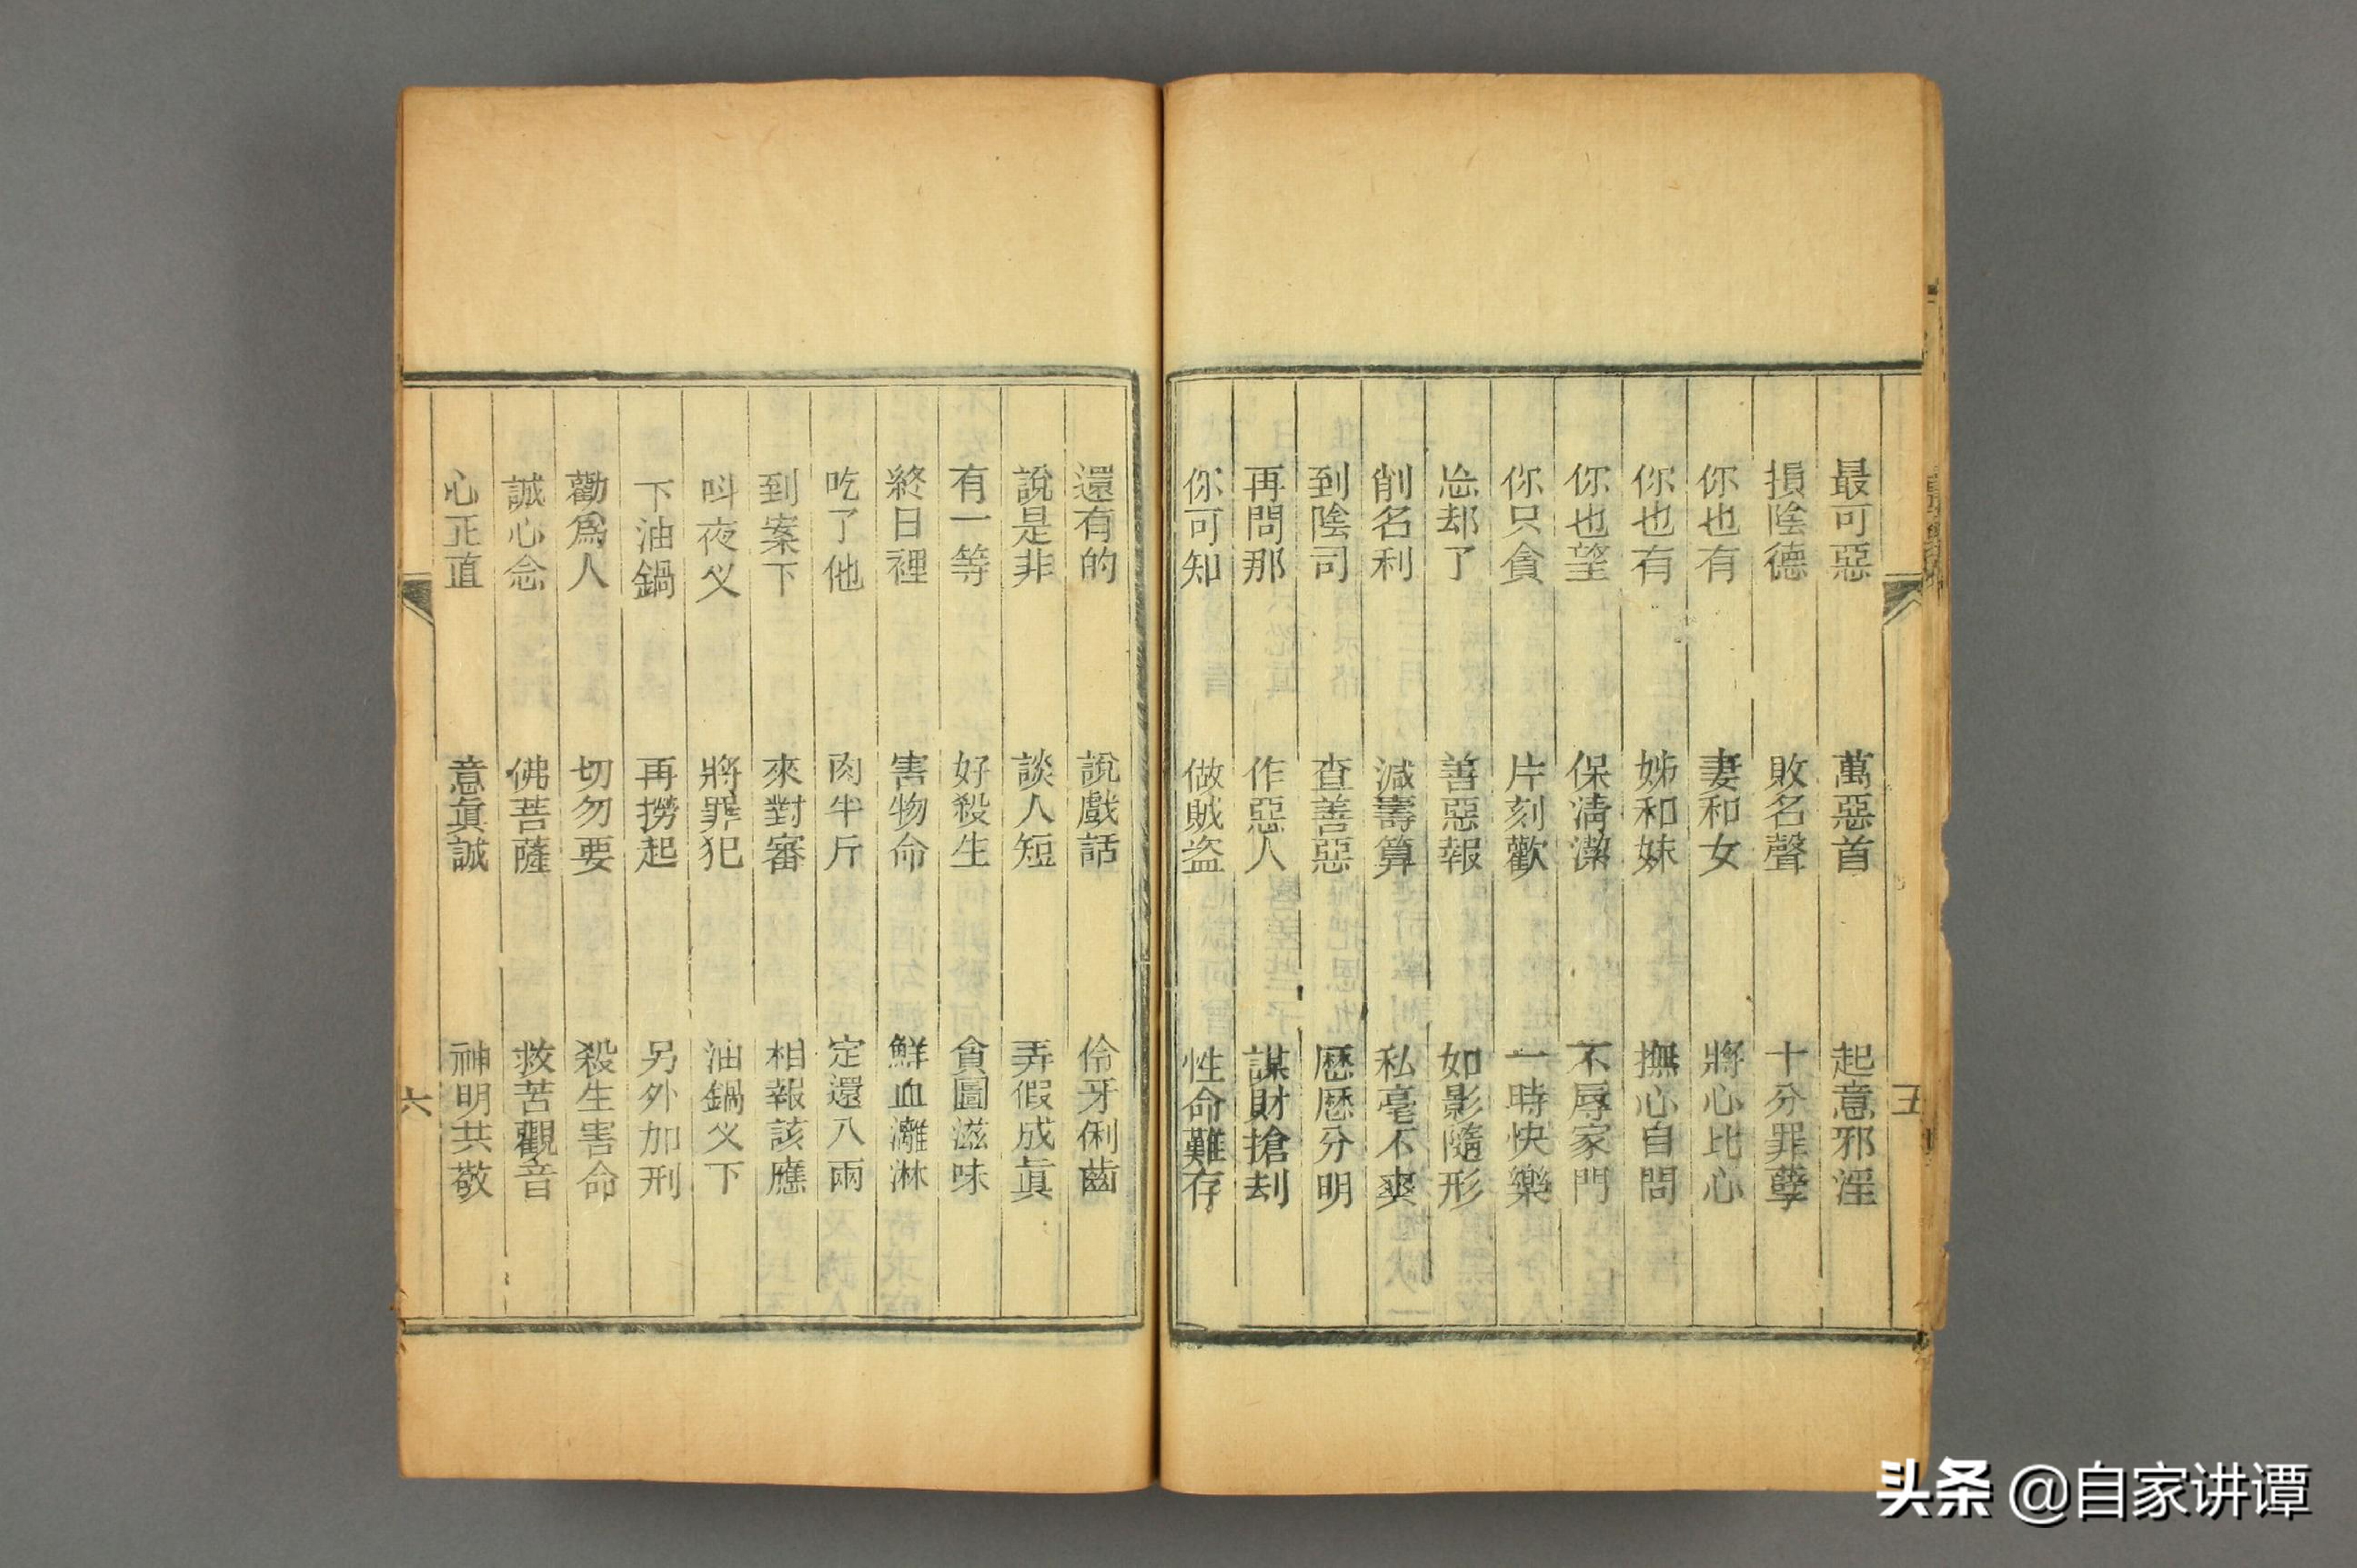 最可惡 萬惡首 起意邪淫
損陰德 敗名聲 十分罪孽
你也有 妻和女 將心比心
你也有 姊和妹 撫心自問
你也望 保清潔 不辱家門
你只貪 片刻歡 一時快樂
忘却了 善惡報 如影隨形
削名利 減壽算 私毫不爽
到陰司 查善惡 歷歷分明
再問那 作惡人 謀財搶刦
你可知 做賊盜 性命難存
五
還有的 說戲話 伶牙俐齒
說是非 談人短 弄假成眞
有一等 好殺生 貪圖滋味
終日裡 害物命 鮮血灕淋
吃了他 肉半斤 定還八兩
到案下 來對審 相報該應
呌夜叉 將罪犯 油鍋叉下
下油鍋 再撈起 另外加刑
勸爲人 切勿要 殺生害命
誠心念 佛菩薩 救苦觀音
心正直 意眞誠 神明共敬
六
头条 @自家讲谭